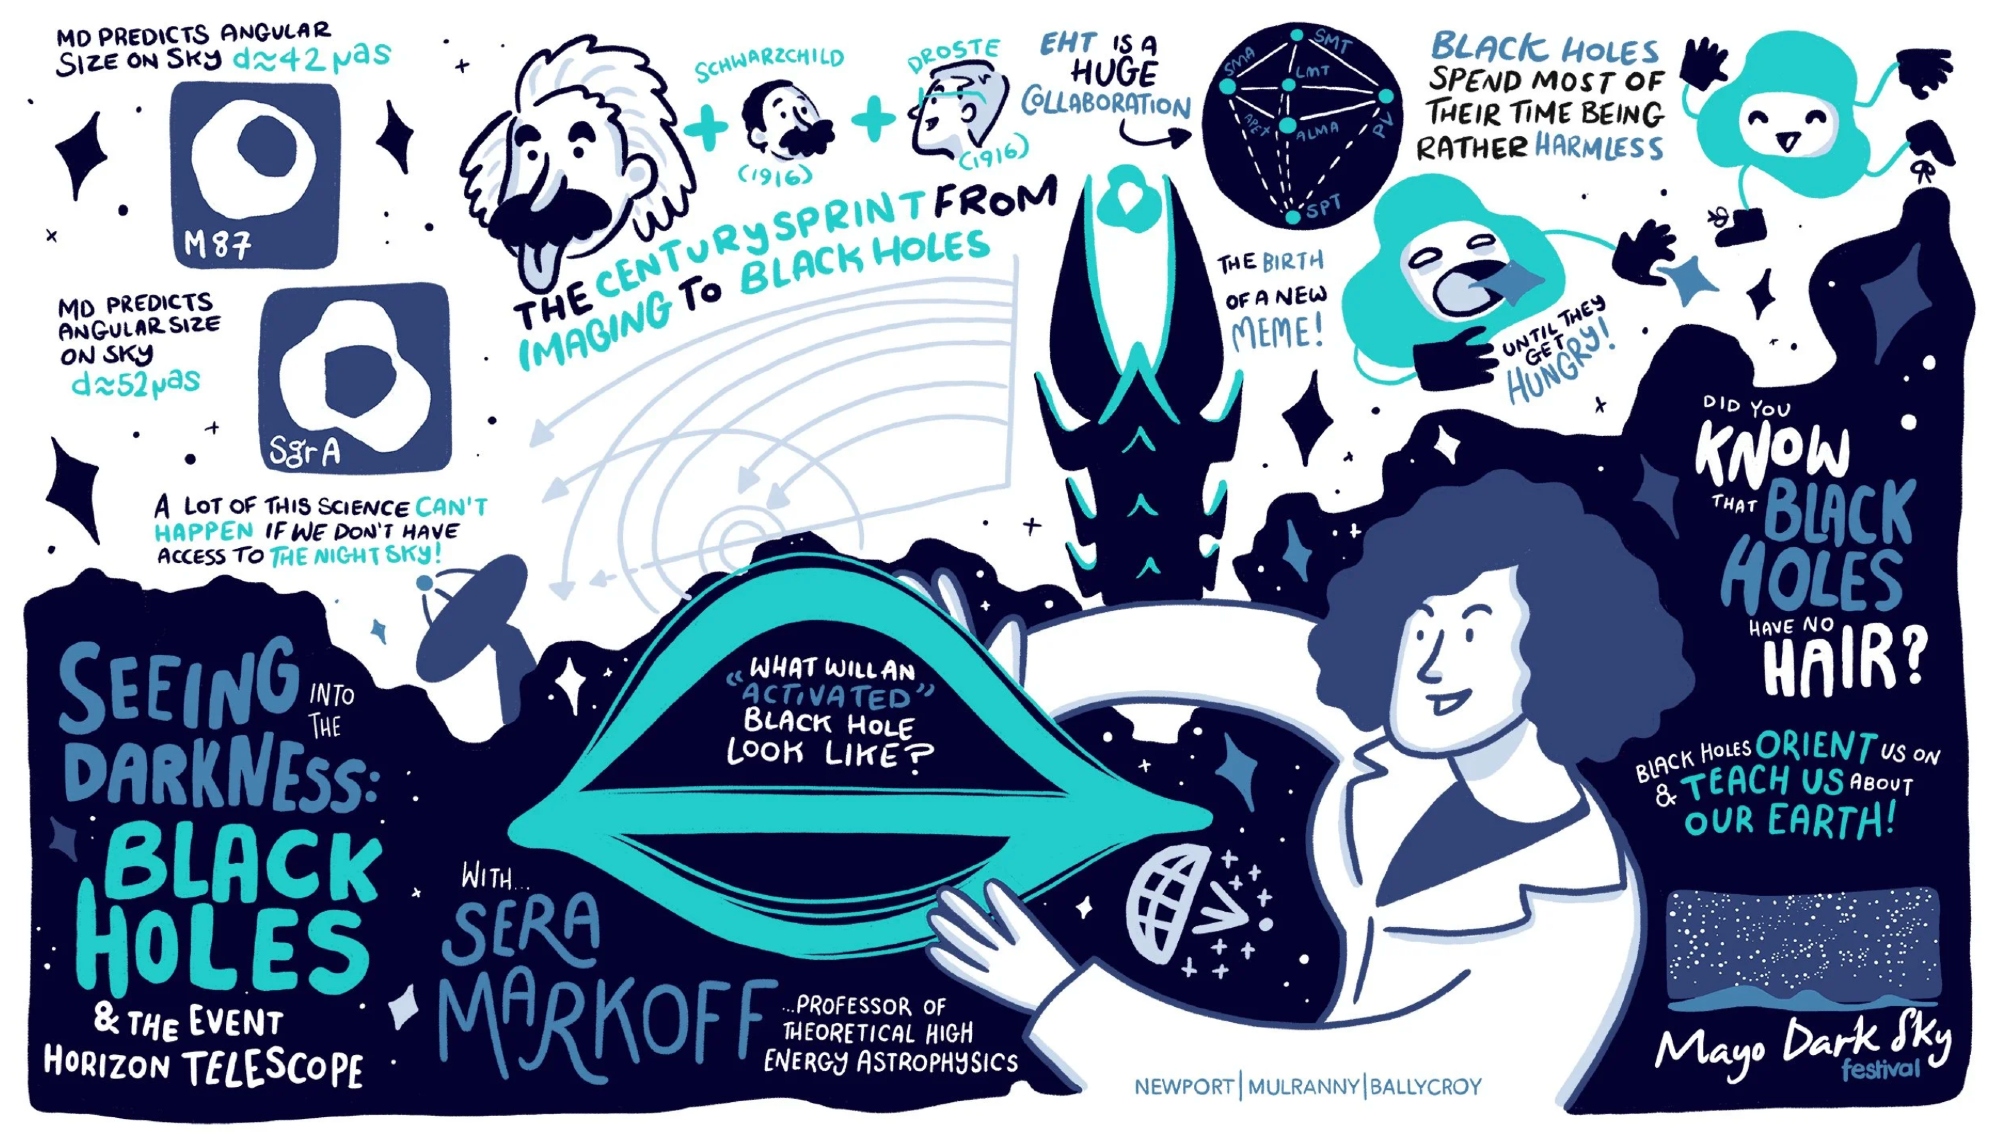 MD PREDICTS ANGULAR
SIZE ON SKY d≈42 µas
M87
MD PREDICTS
ANGULAR SIZE
ON SKY
d≈52µas
SgrA
A LOT OF THIS SCIENCE CAN'T
HAPPEN IF WE DON'T HAVE
ACCESS TO THE NIGHT SKY!
SCHWARZCHILD
(1916)
DROSTE
(1916)
THE CENTURY SPRINT FROM
IMAGING TO BLACK HOLES
EHT IS A
HUGE
COLLABORATION
SMT
SMA
LMT
APEX
ALMA
PV
SPT
THE BIRTH
OF A NEW
MEME!
BLACK HOLES
SPEND MOST OF
THEIR TIME BEING
RATHER HARMLESS
UNTIL THEY
GET
HUNGRY!
DID YOU
KNOW
THAT BLACK
HOLES
HAVE NO
HAIR?
BLACK HOLES ORIENT US ON
& TEACH US ABOUT
OUR EARTH!
SEEING INTO
THE
DARKNESS:
BLACK
HOLES
& THE EVENT
HORIZON TELESCOPE
WITH...
SERA
MARKOFF
...PROFESSOR OF
THEORETICAL HIGH
ENERGY ASTROPHYSICS
WHAT WILL AN
"ACTIVATED"
BLACK HOLE
LOOK LIKE?
NEWPORT|MULRANNY|BALLYCROY
Mayo Dark Sky
festival